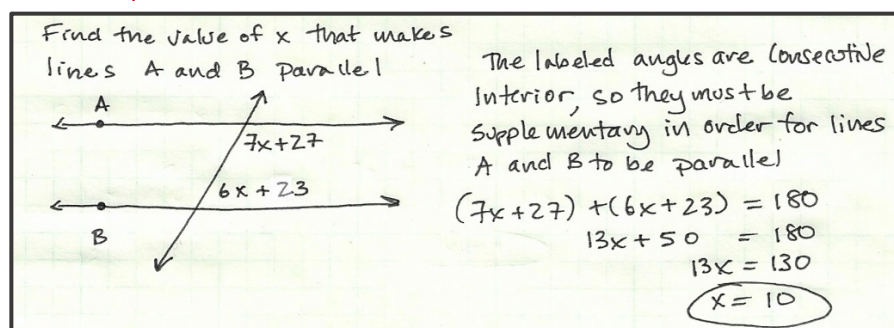 Find the value of x that makes
lines A and B parallel
A
7x+27
6x + 23
B
The labeled angles are Consecutive
Interior, so they must be
Supplementary in order for lines
A and B to be parallel
(7x+27) +(6x+23) = 180
13x + 50 = 180
13x = 130
x = 10